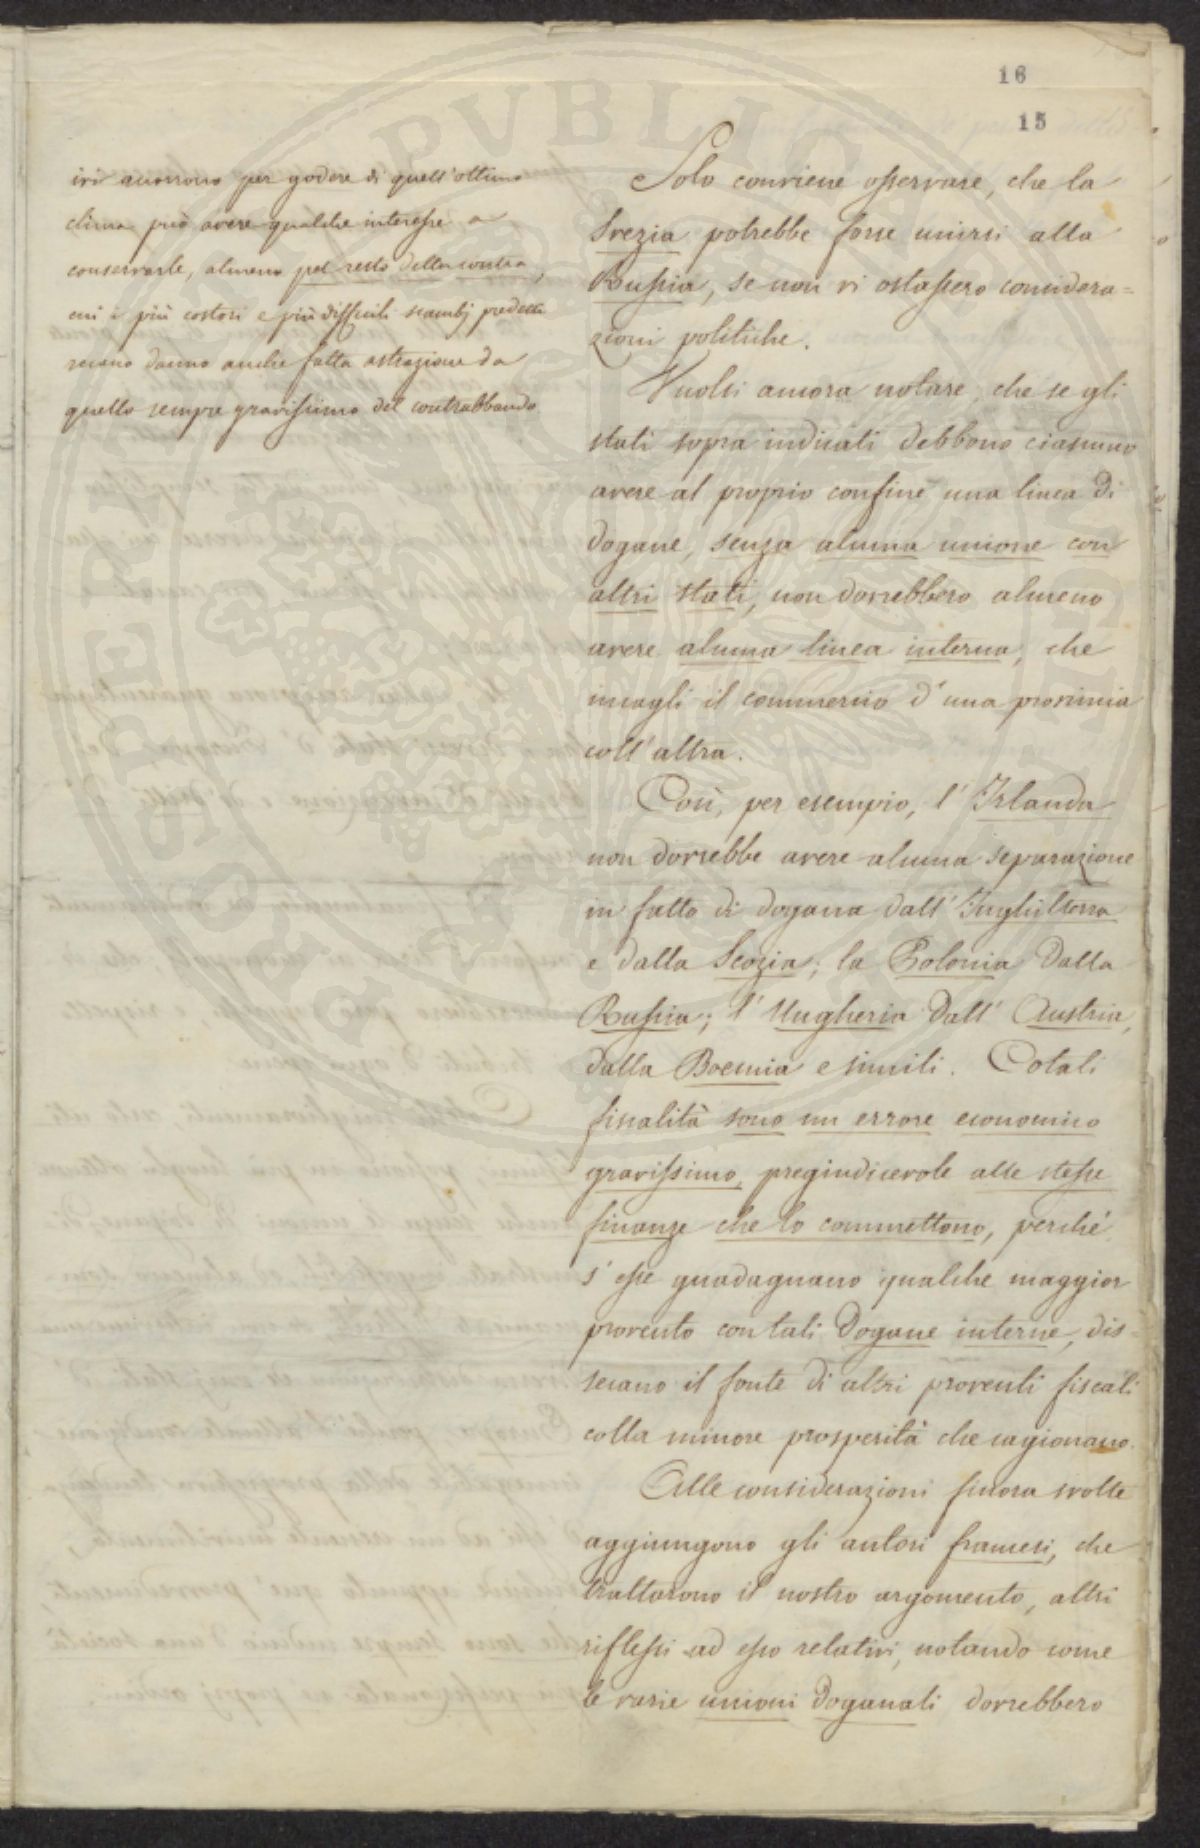 16
15
ivi accorrono per godere di quell'ottimo
clima può avere qualche interesse a
conservarle, almeno pel resto della contea,
cui i più costosi e più difficili scambj predetti
recano danno anche fatta astrazione da
quello sempre gravissimo del contrabbando
Solo conviene osservare, che la
Svezia potrebbe forse unirsi alla
Russia, se non vi ostassero considera=
zioni politiche.
Vuolsi ancora notare, che se gli
stati sopra indicati debbono ciascuno
avere al proprio confine una linea di
dogane, senza alcuna unione con
altri stati, non dovrebbero almeno
avere alcuna linea interna, che
incagli il commercio d'una provincia
coll'altra.
Così, per esempio, l'Irlanda
non dovrebbe avere alcuna separazione
in fatto di dogana dall'Inghilterra
e dalla Scozia; la Polonia dalla
Russia; l'Ungheria dall'Austria,
dalla Boemia e simili. Cotali
fiscalità sono un errore economico
gravissimo, pregiudicevole alle stesse
finanze che lo commettono, perché
s'esse guadagnano qualche maggior
provento con tali Dogane interne, dis=
seccano il fonte di altri proventi fiscali
colla minore prosperità che cagionano.
Alle considerazioni finora svolte
aggiungono gli autori francesi, che
trattarono il nostro argomento, altri
riflessi ad esso relativi, notando come
le varie unioni Doganali dovrebbero